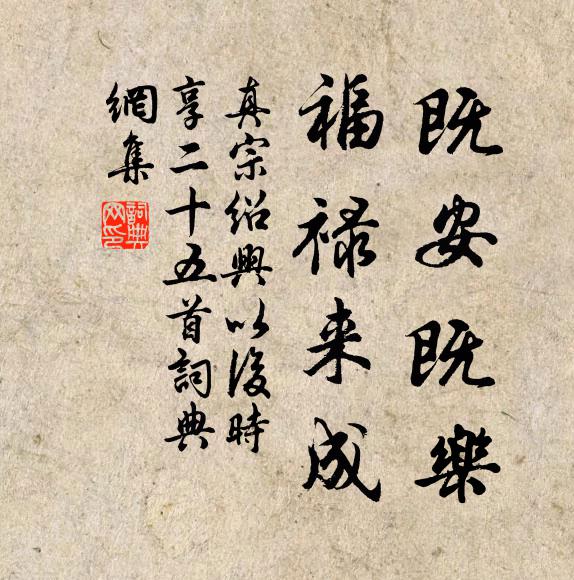 既安既樂
福祿来成
真宗紹興以後時
享二十五首詞典
網集
詞典
网印